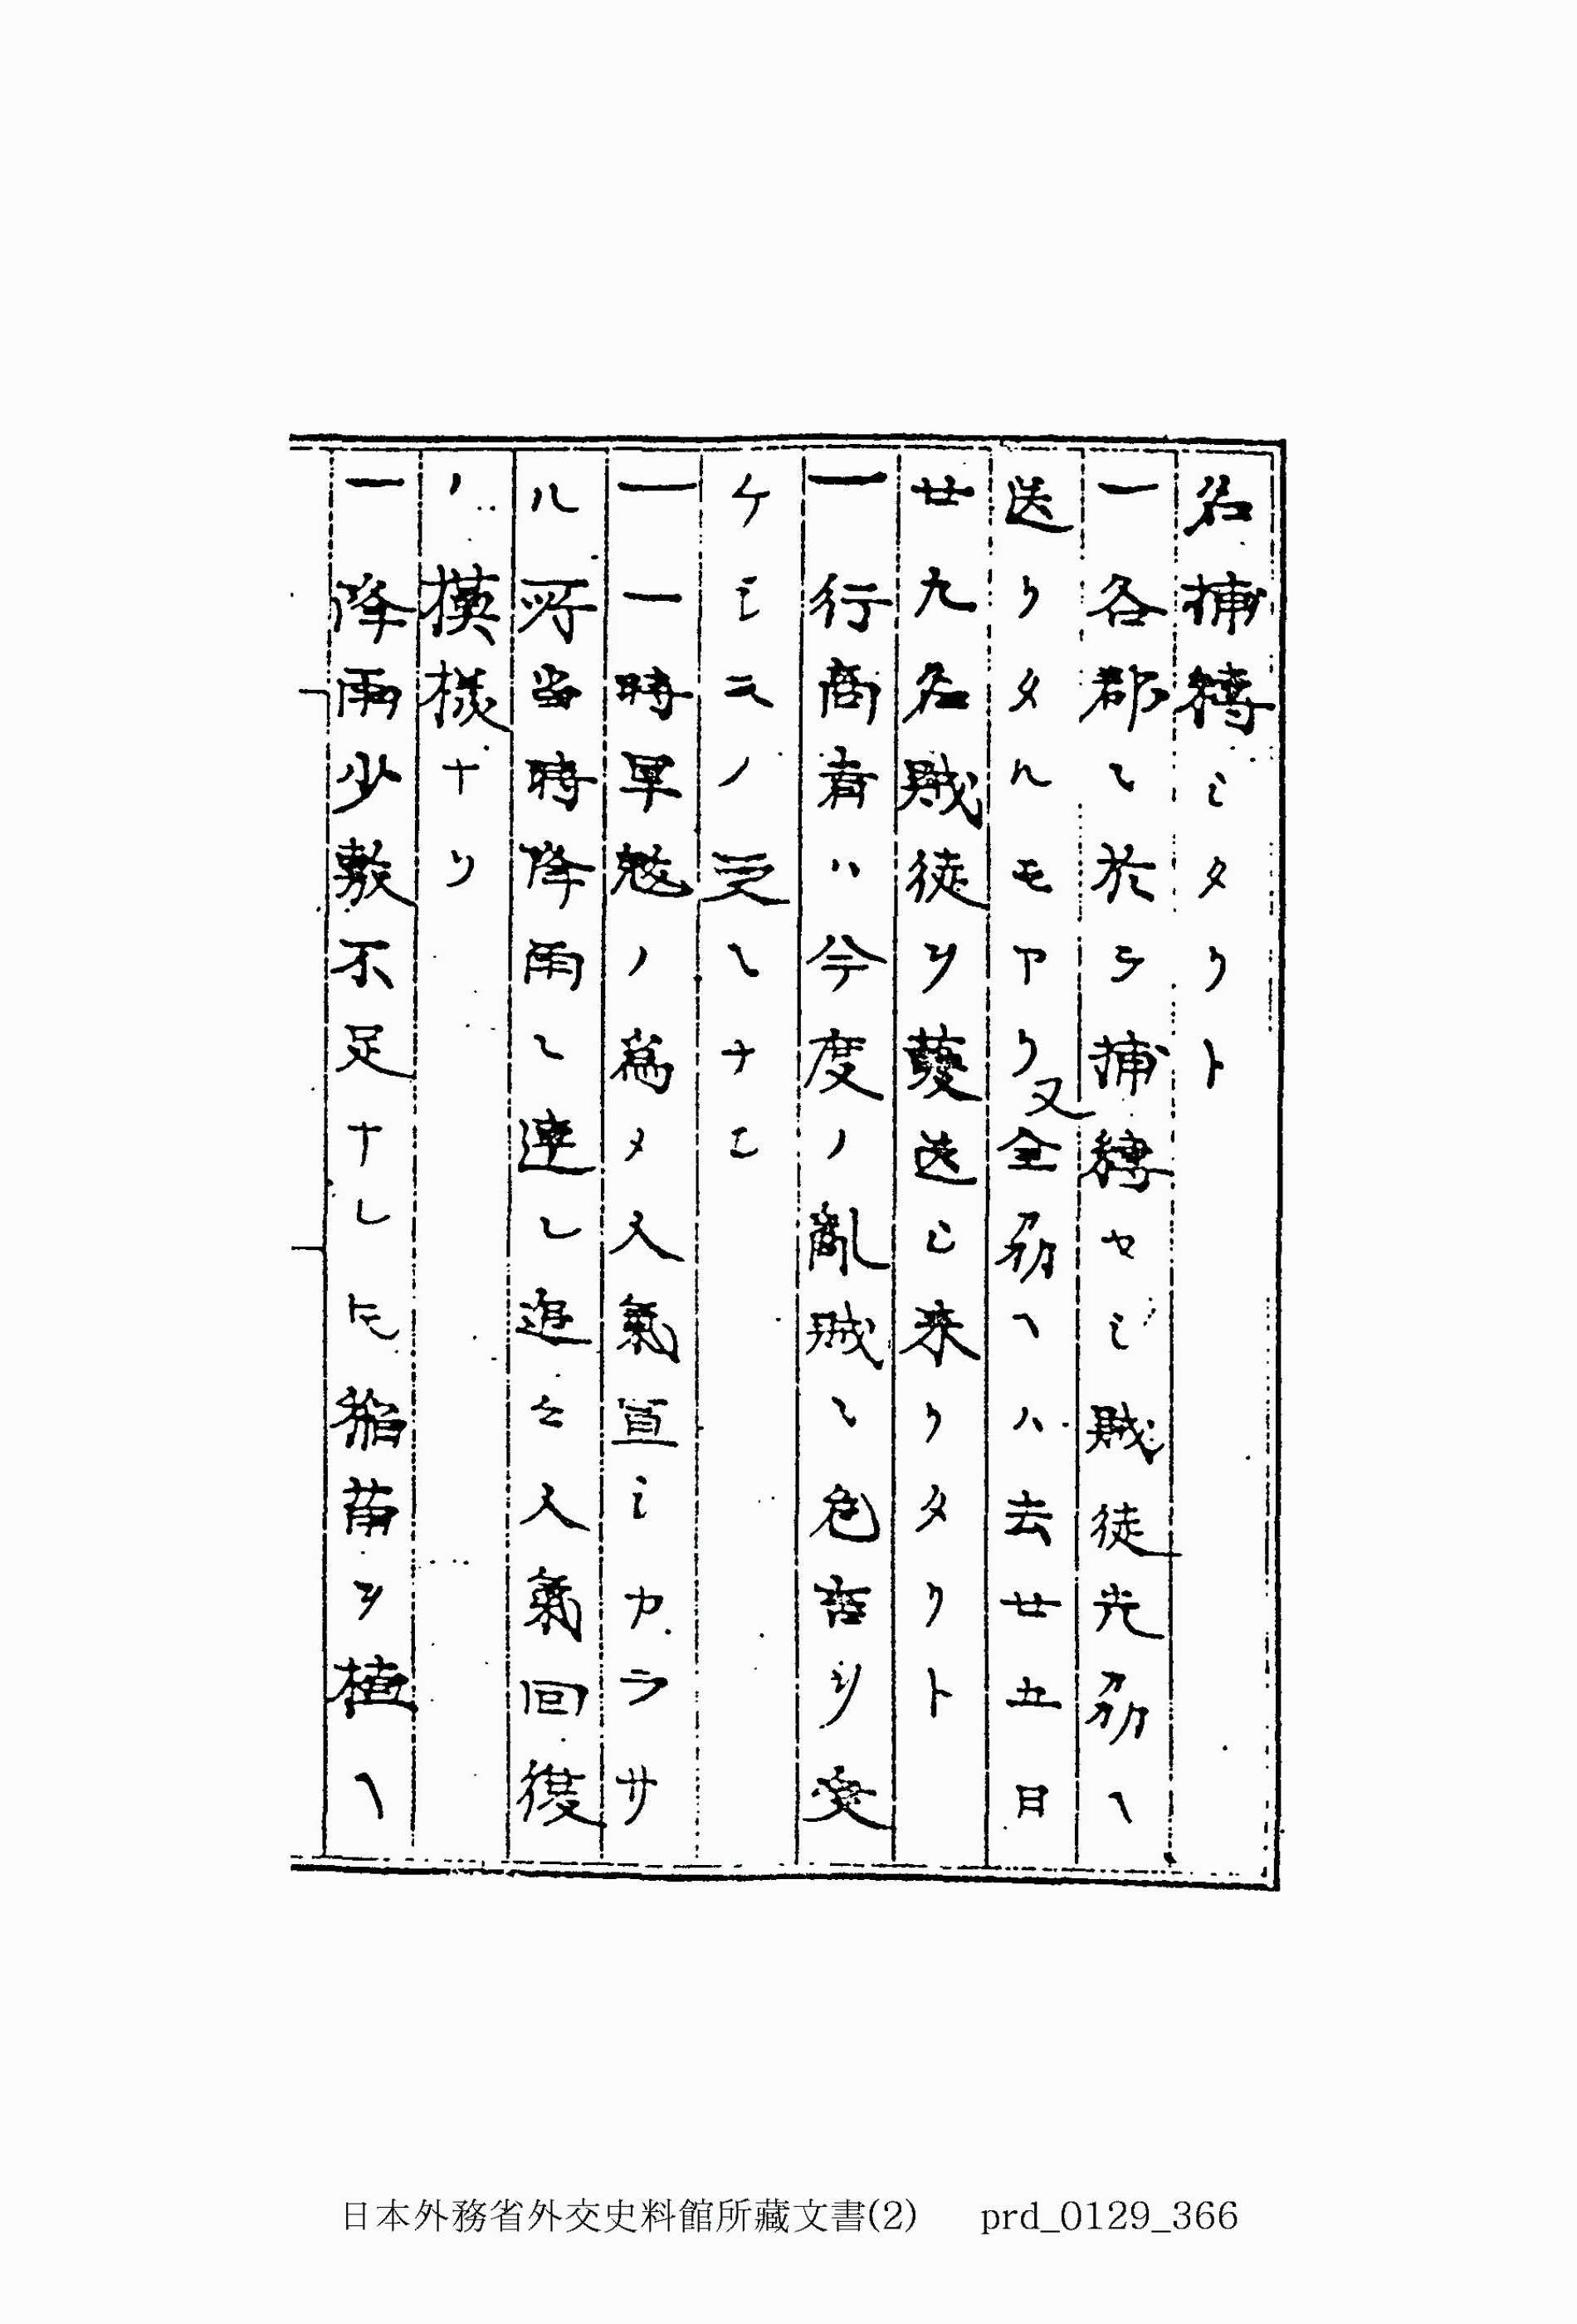 名捕縛シタリト
一各郡ニ於テ捕縛セシ賊徒先刕ヘ
送リタルモアリ又全刕ヘハ去廿五日
廿九名賊徒ヲ護送シ来リタリト
一行商者ハ今度ノ亂賊ニ危害ヲ受
ケシモノ受ヘナシ
一一時旱魃ノ為メ人氣宣シカラサ
ル所当時降雨ニ達シ追々人氣回復
ノ模様ナリ
一降雨少数不足ナレ𪜈稲苗ヲ植ヘ
日本外務省外交史料館所藏文書(2) prd_0129_366